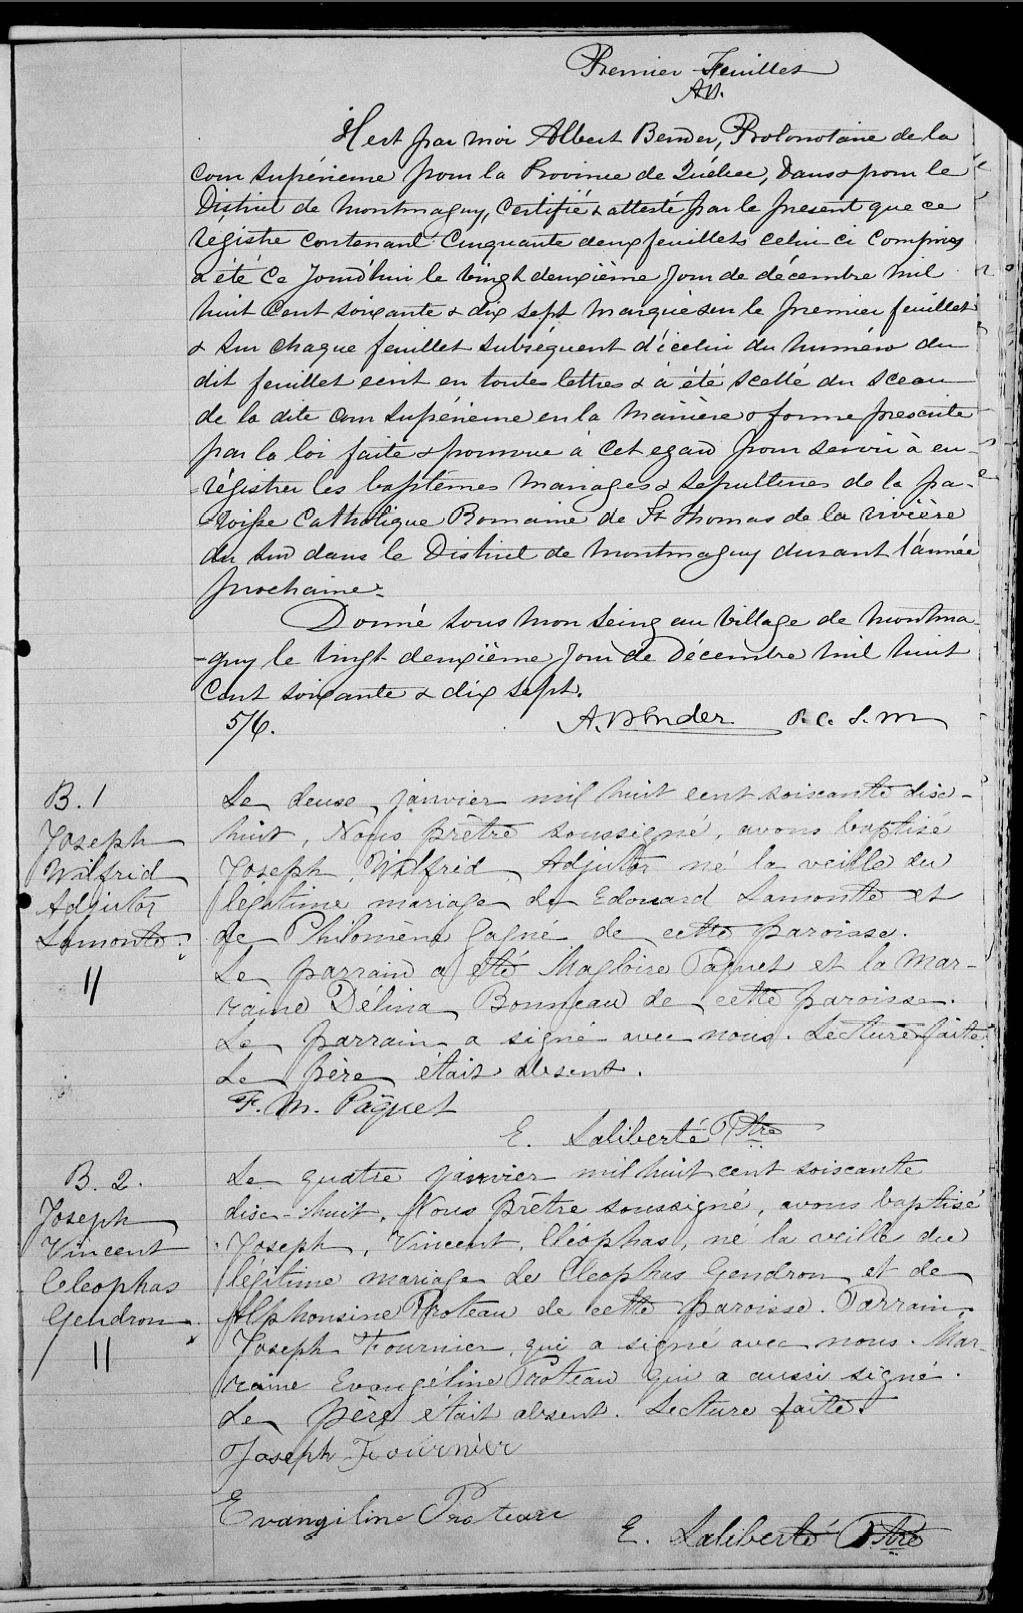 Premier Feuillet
A.B.
Il est par moi Albert Bender, Protonotaire de la
cour Supérieure pour la Province de Québec, dans & pour le
District de Montmagny, Certifié & attesté par le présent que ce
registre contenant Cinquante deux feuillets celui ci compris
a été ce jourd'hui le vingt deuxième jour de décembre mil
huit Cent soixante & dix sept marqué sur le premier feuillet
& sur chaque feuillet subséquent d'icelui du numéro du
dit feuillet ecrit en toutes lettres & à été scellé du sceau
de la dite cour supérieure en la manière & forme prescrite
par la loi faite & pourvue à cet egard pour servir à en-
-régistrer les baptêmes mariages & sepultures de la pa-
-roisse Catholique Romaine de St Thomas de la rivière
du Sud dans le District de Montmagny durant l'année
prochaine.
Donné sous mon seing au village de Montma-
-gny le vingt deuxième jour de Décembre mil huit
Cent soixante & dix sept.
5/6. A. Bender P.C.S.M
B. 1
Joseph
Wilfrid
Adjutor
Lamonte
Le deuse janvier mil huit cent soixante disc-
huit, Nous prêtre soussigné, avons baptisé
Joseph, Wilfrid, Adjutor né la veille du
légitime mariage de Edouard Lamonte et
de Philomène Gagné de cette paroisse.
Le parrain a été Magloire Paquet et la Mar-
raine Délina Bonneau de cette paroisse.
Le parrain a signé avec nous. Lecture faite.
Le père était absent.
F. M. Pâquet
E. Laliberté Ptre
B. 2.
Joseph
Vincent
Cléophas
Gendron
Le quatre janvier mil huit cent soixante
disc-huit, Nous Prêtre soussigné, avons baptisé
Joseph, Vincent, Cléophas, né la veille du
légitime mariage de Cléophas Gendron et de
Alphonsine Proteau de cette paroisse. Parrain,
Joseph Fournier, qui a signé avec nous. Mar-
raine Evangéline Proteau qui a aussi signé.
Le père était absent. Lecture faite.
Joseph Fournier
Evangiline Proteau
E. Laliberté Ptre